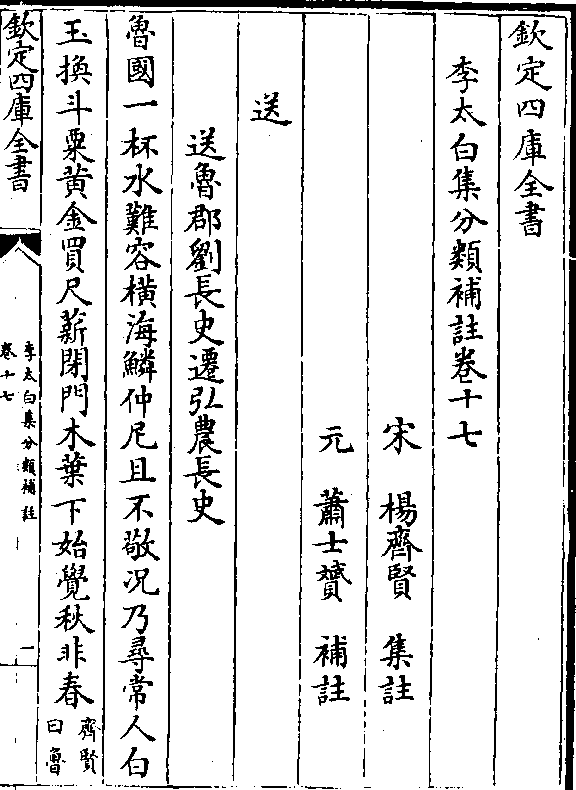 欽定四庫全書
李太白集分類補註卷十七
宋　楊齊賢　集註
元　蕭士贇　補註
送
送魯郡劉長史遷弘農長史
魯國一杯水難容橫海鱗仲尼且不敬况乃尋常人白
玉換斗粟黄金買尺薪閉門木葉下始覺秋非春齊賢
曰魯
欽定四庫全書
李太白集分類補註
卷十七
一